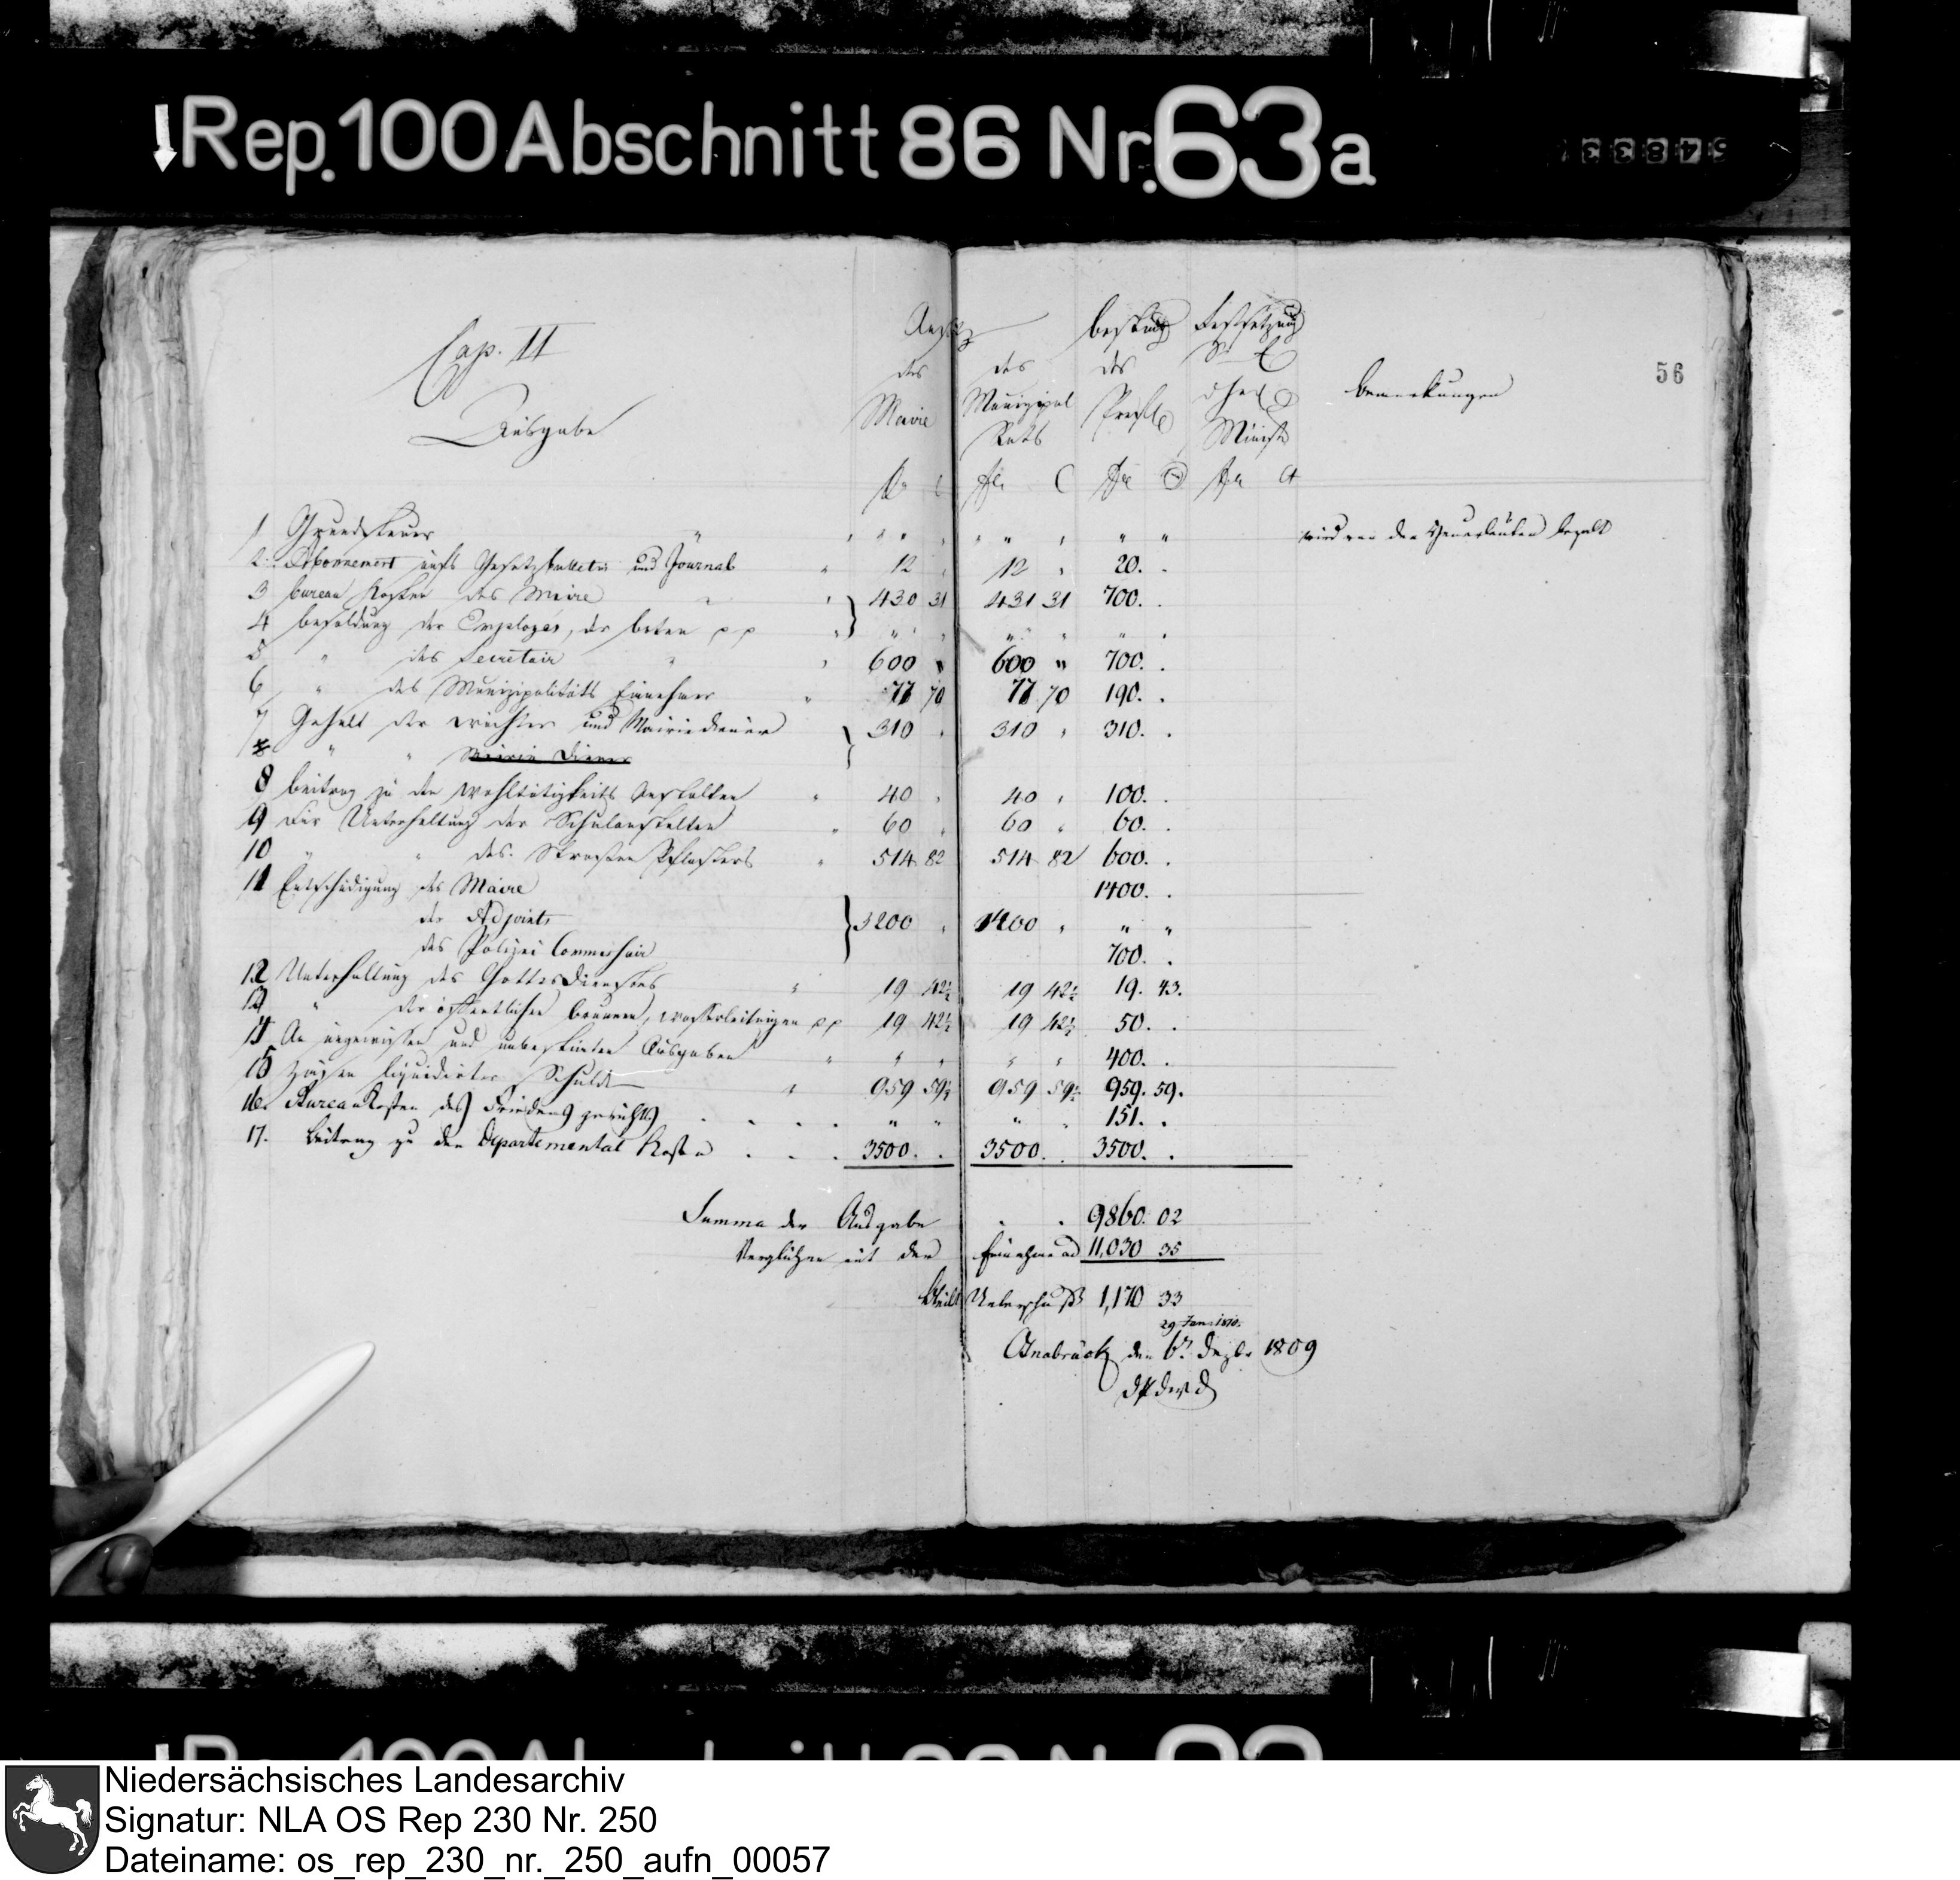 Rep. 100 Abschnitt 86 Nr. 63a
56
Cap. II
Ausgabe
Ansatz
des Maire
des Munizipal Raths
des Präfect
Festsetzung
Bemerkungen
1 Grundsteuer " " " " " " wird von den bezalt
2. Abonnement aufs Gesetzbulletin und Journal " 12 12 20. .
3 bureau Kosten des Maire 430 31 431 31 700. .
4 besoldung der Employes, der boten pp " " "
5 " des Secretair " 600 " 600 " 700. .
6 " des Munizipalitäts Einnehmer 77 70 77 70 190. .
7 Gehalt der Wächter und Mairiediener 310 310 310. .
8 " " Mairie Diener
8 beitrag zu den Wohltätigkeits Anstalten " 40 40 100. .
9 der Unterhaltung der Schulanstalten " 60 60 60. .
10 " " des Strassen Pflasters " 514 82 514 82 600. .
11 Entschädigung des Maire 1400. .
der Adjoints 3200 1400 " "
des Polizei Commissair 700. .
12 Unterhaltung des Gottesdienstes " 19 42½ 19 42½ 19. 43.
13 " der öffentlichen brunnen, Wasserleitungen pp 19 42½ 19 42½ 50. .
14 An ungewissen und unbestimten Ausgaben " " " 400. .
15 Zinsen liquidirter Schulden " 959 59½ 959 59½ 959. 59.
16. Bureau Kosten des Friedens gerichts . . . . " " " 151. .
17. Beitrag zu den Departemental Kosten . . . 3500. . 3500. . 3500. .
Summa der Ausgabe . . 9860. 02
Verglichen mit der Einnahme ad 11,030 35
Bleibt Ueberschuß 1,170 33
29 Jan. 1810.
Osnabrück den 6n. Dezbr 1809
Niedersächsisches Landesarchiv
Signatur: NLA OS Rep 230 Nr. 250
Dateiname: os_rep_230_nr._250_aufn_00057